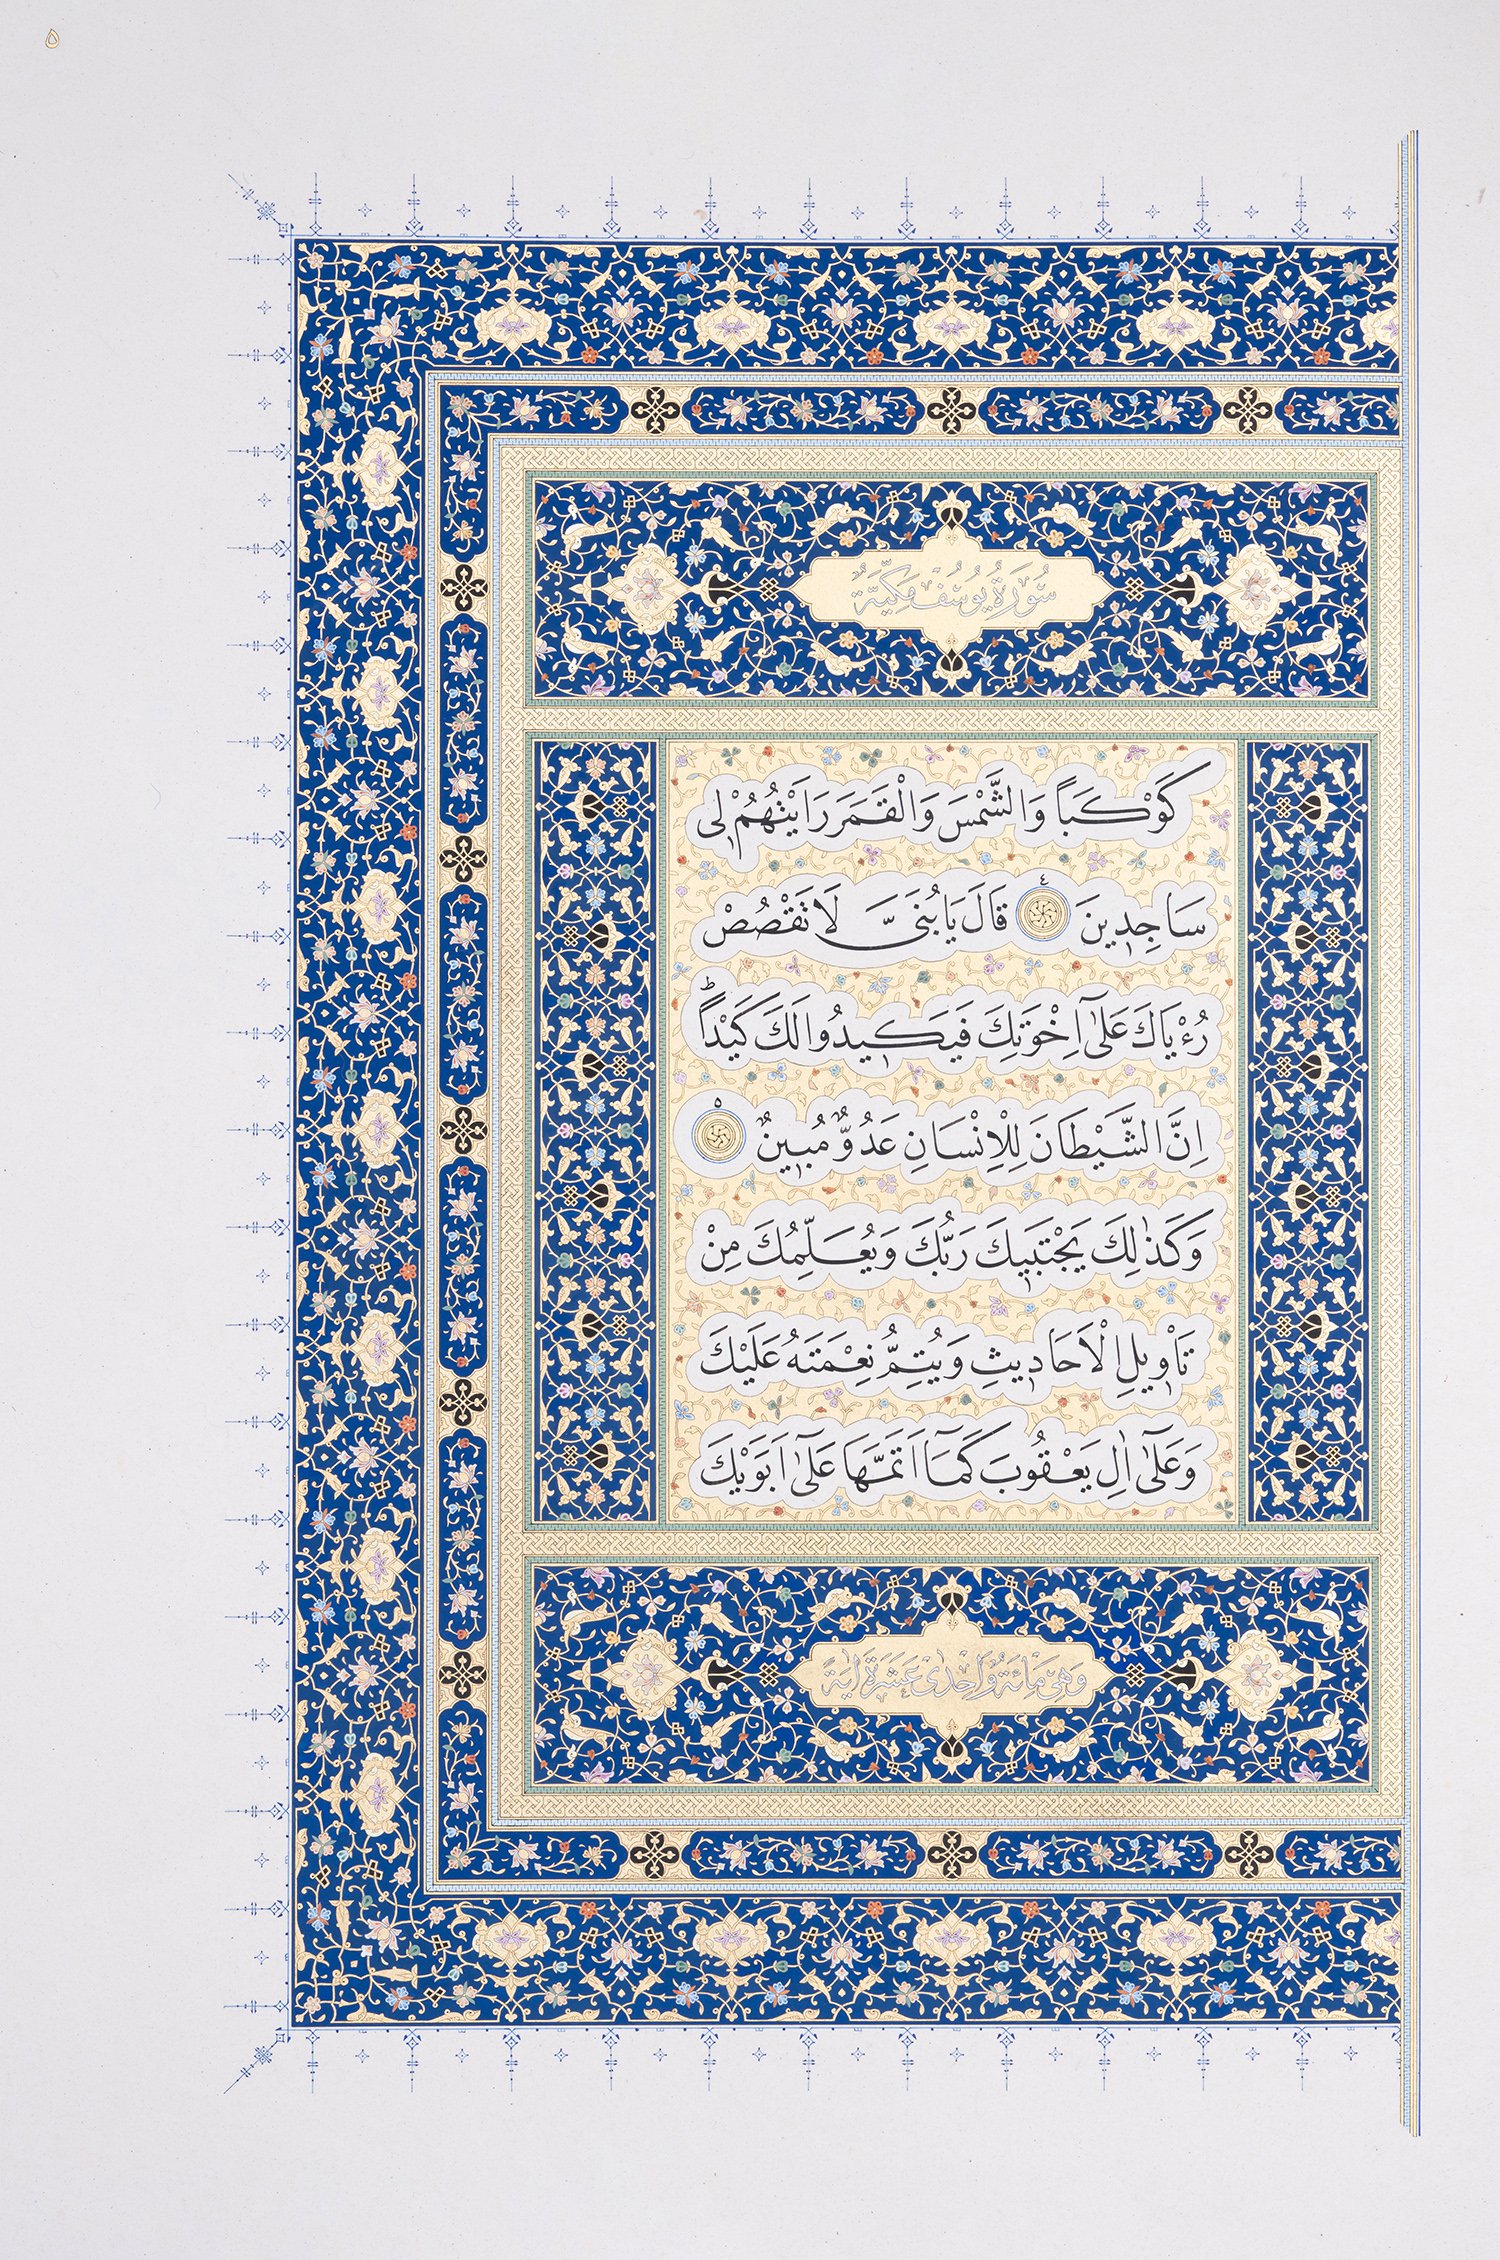 ۵
سُورَةُ يُوسُفَ مَكِّيَّةٌ
كَوْكَبًا وَالشَّمْسَ وَالْقَمَرَ رَاَيْتُهُمْ لٖى
سَاجِدٖينَ ٤ قَالَ يَا بُنَىَّ لَا تَقْصُصْ
رُءْيَاكَ عَلٰٓى اِخْوَتِكَ فَيَكٖيدُوا لَكَ كَيْدًاؕ
اِنَّ الشَّيْطَانَ لِلْاِنْسَانِ عَدُوٌّ مُبٖينٌ ٥
وَكَذٰلِكَ يَجْتَبٖيكَ رَبُّكَ وَيُعَلِّمُكَ مِنْ
تَاْوٖيلِ الْاَحَادٖيثِ وَيُتِمُّ نِعْمَتَهُ عَلَيْكَ
وَعَلٰٓى اٰلِ يَعْقُوبَ كَمَٓا اَتَمَّهَا عَلٰٓى اَبَوَيْكَ
وَهِىَ مِائَةٌ وَاِحْدٰى عَشَرَةَ اٰيَةً